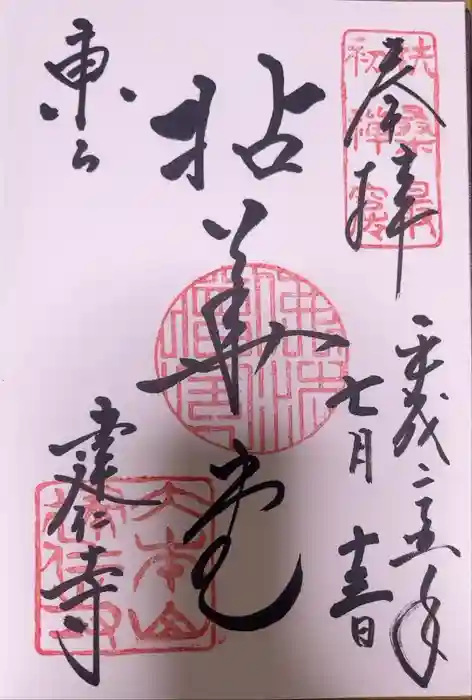 扶桑最初禅窟
奉拝
平成二五年
七月十三日
拈華堂
東山
建仁寺
大本山建仁寺